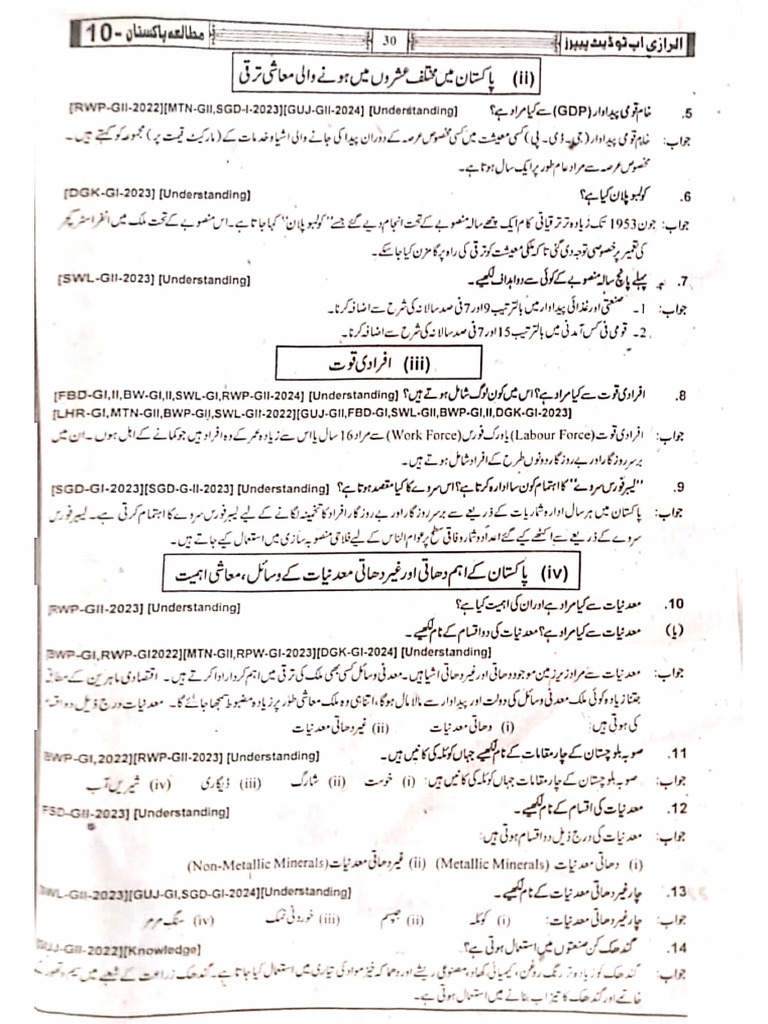 الرازی اپ ٹو ڈیٹ پیپرز 30 مطالعہ پاکستان -10
(ii) پاکستان میں مختلف عشروں میں ہونے والی معاشی ترقی
5. خام قومی پیداوار (GDP) سے کیا مراد ہے؟ [RWP-GII-2022][MTN-GII,SGD-I-2023][GUJ-GII-2024] [Understanding]
جواب: خام قومی پیداوار (جی۔ ڈی۔ پی) کسی معیشت میں کسی مخصوص عرصہ کے دوران پیدا کی جانے والی اشیا و خدمات کے (مارکیٹ قیمت پر) مجموعہ کو کہتے ہیں۔
مخصوص عرصہ سے مراد عام طور پر ایک سال ہوتا ہے۔
6. کولمبو پلان کیا ہے؟ [DGK-GI-2023] [Understanding]
جواب: جون 1953 تک زیادہ تر ترقیاتی کام ایک چھے سالہ منصوبے کے تحت انجام دیے گئے جسے "کولمبو پلان" کہا جاتا ہے۔ اس منصوبے کے تحت ملک میں انفراسٹرکچر
کی تعمیر پر خصوصی توجہ دی گئی تاکہ ملکی معیشت کو ترقی کی راہ پر گامزن کیا جا سکے۔
7. پہلے پانچ سالہ منصوبے کے کوئی سے دو اہداف لکھیے۔ [SWL-GII-2023] [Understanding]
جواب: 1۔ صنعتی اور غذائی پیداوار میں بالترتیب 9 اور 7 فی صد سالانہ کی شرح سے اضافہ کرنا۔
2۔ قومی فی کس آمدنی میں بالترتیب 15 اور 7 فی صد سالانہ کی شرح سے اضافہ کرنا۔
(iii) افرادی قوت
8. افرادی قوت سے کیا مراد ہے؟ اس میں کون لوگ شامل ہوتے ہیں؟ [FBD-GI,II,BW-GI,II,SWL-GI,RWP-GII-2024] [Understanding]
[LHR-GI,MTN-GII,BWP-GII,SWL-GII-2022][GUJ-GII,FBD-GI,SWL-GII,BWP-GI,II,DGK-GI-2023]
جواب: افرادی قوت (Labour Force) یا ورک فورس (Work Force) سے مراد 16 سال یا اس سے زیادہ عمر کے وہ افراد ہیں جو کمانے کے اہل ہوں۔ ان میں
برسر روزگار اور بے روزگار دونوں طرح کے افراد شامل ہوتے ہیں۔
9. "لیبر فورس سروے" کا اہتمام کون سا ادارہ کرتا ہے؟ اس سروے کا کیا مقصد ہوتا ہے؟ [SGD-GI-2023][SGD-G-II-2023] [Understanding]
جواب: پاکستان میں ہر سال ادارہ شماریات کے ذریعے سے برسر روزگار اور بے روزگار افراد کا تخمینہ لگانے کے لیے لیبر فورس سروے کا اہتمام کرتی ہے۔ لیبر فورس
سروے کے ذریعے سے اکٹھے کیے گئے اعداد و شمار وفاقی سطح پر عوام الناس کے لیے فلاحی منصوبہ سازی میں استعمال کیے جاتے ہیں۔
(iv) پاکستان کے اہم دھاتی اور غیر دھاتی معدنیات کے وسائل، معاشی اہمیت
10. معدنیات سے کیا مراد ہے اور ان کی اہمیت کیا ہے؟ [RWP-GII-2023] [Understanding]
(یا) معدنیات سے کیا مراد ہے؟ معدنیات کی دو اقسام کے نام لکھیے۔
BWP-GI,RWP-GI2022][MTN-GII,RPW-GI-2023][DGK-GI-2024] [Understanding]
جواب: معدنیات سے مراد زیر زمین موجود دھاتی اور غیر دھاتی اشیا ہیں۔ معدنی وسائل کسی بھی ملک کی ترقی میں اہم کردار ادا کرتے ہیں۔ اقتصادی ماہرین کے مطابق
جتنا زیادہ کوئی ملک معدنی وسائل کی دولت اور پیداوار سے مالا مال ہوگا، اتنا ہی وہ ملک معاشی طور پر زیادہ مضبوط سمجھا جائے گا۔ معدنیات درج ذیل دو اقسام
کی ہوتی ہیں: (i) دھاتی معدنیات (ii) غیر دھاتی معدنیات
11. صوبہ بلوچستان کے چار مقامات کے نام لکھیے جہاں کوئلہ کی کانیں ہیں۔ BWP-GI,2022][RWP-GII-2023] [Understanding]
جواب: صوبہ بلوچستان کے چار مقامات جہاں کوئلہ کی کانیں ہیں: (i) خوست (ii) شارگ (iii) ڈیگاری (iv) شیریں آب
12. معدنیات کی اقسام کے نام لکھیے۔ FSD-GII-2023] [Understanding]
جواب: معدنیات کی درج ذیل دو اقسام ہوتی ہیں:
(i) دھاتی معدنیات (Metallic Minerals) (ii) غیر دھاتی معدنیات (Non-Metallic Minerals)
13. چار غیر دھاتی معدنیات کے نام لکھیے۔ WL-GII-2023][GUJ-GI,SGD-GI-2024][Understanding]
جواب: چار غیر دھاتی معدنیات: (i) کوئلہ (ii) جپسم (iii) خوردنی نمک (iv) سنگ مرمر
14. گندھک کن صنعتوں میں استعمال ہوتی ہے؟ GUJ-GII-2022][Knowledge]
جواب: گندھک کو زیادہ تر رنگ و روغن، کیمیائی کھاد، مصنوعی ریشے اور دھماکہ خیز مواد کی تیاری میں استعمال کیا جاتا ہے۔ گندھک زراعت کے شعبے میں سیم و تھور کے
خاتمے اور گندھک کا تیزاب بنانے میں استعمال ہوتی ہے۔